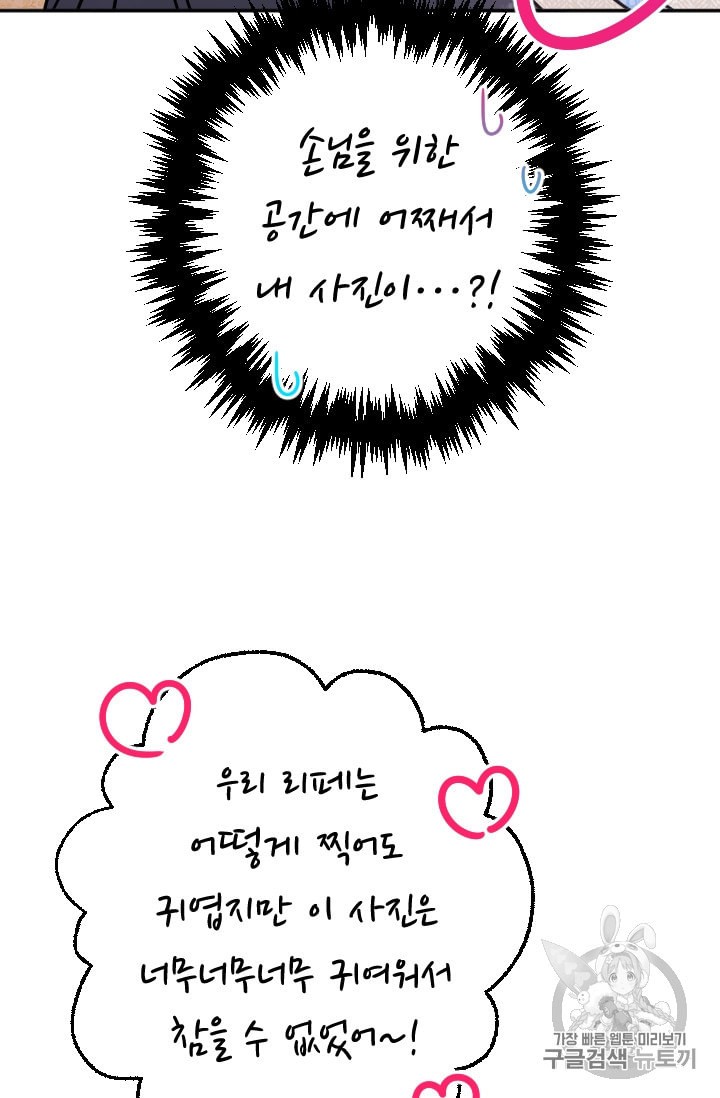 손님을 위한
공간에 어째서
내 사진이···?!
우리 리페는
어떻게 찍어도
귀엽지만 이 사진은
너무너무너무 귀여워서
참을 수 없었어~!
가장 빠른 웹툰 미리보기
구글검색 뉴토끼